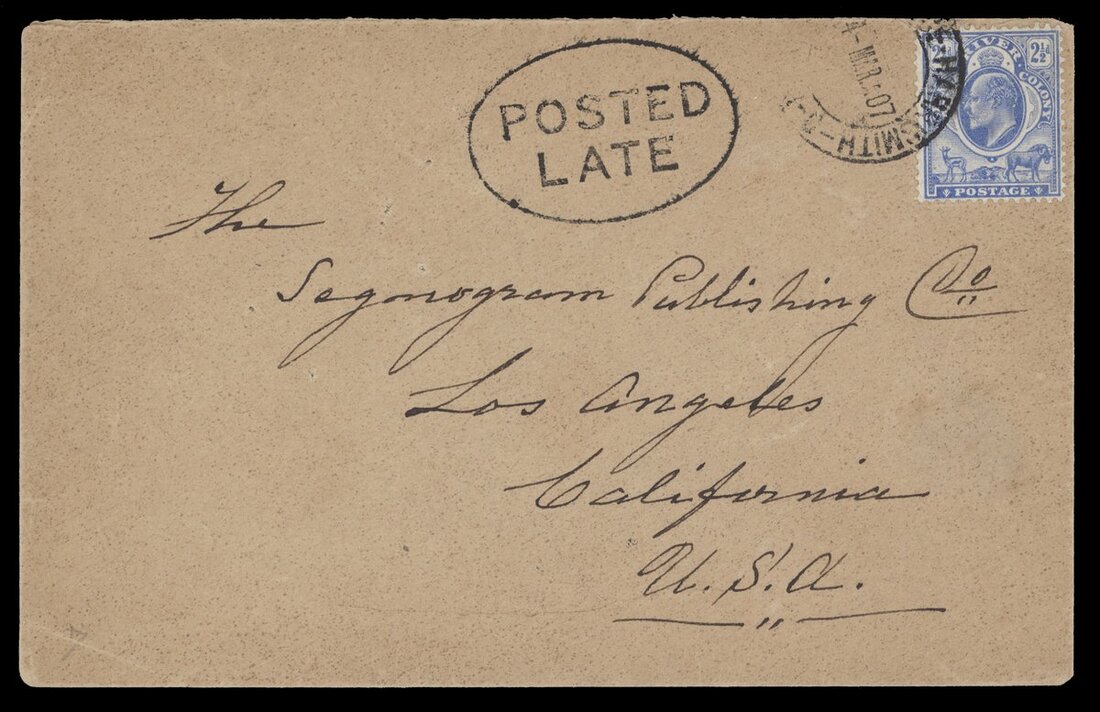 POSTED
LATE
4-MAR.07
SMITH
RIVER COLONY
2½d
POSTAGE
The
Segonogram Publishing Co
Los Angeles
California
U.S.A.